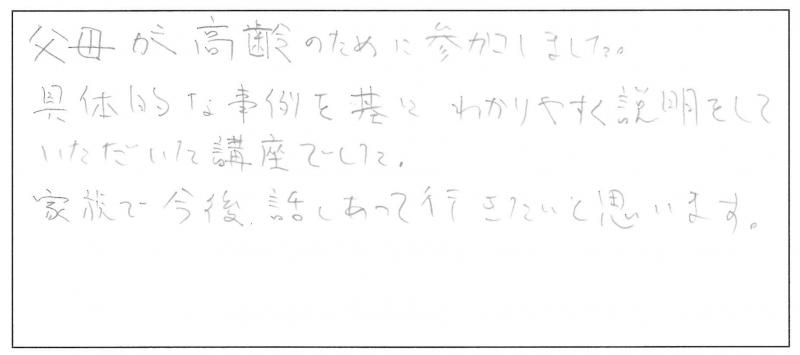 父母が高齢のために参加しました。
具体的な事例を基に わかりやすく説明をして
いただいた講座でした。
家族で今後、話しあって行きたいと思います。